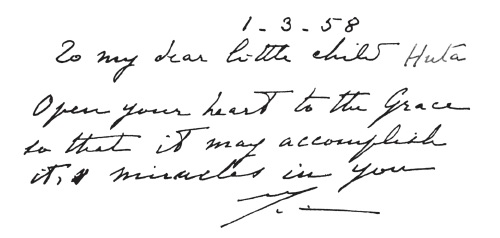 1 - 3 - 58
To my dear little child Huta
Open your heart to the Grace
so that it may accomplish
its miracles in you